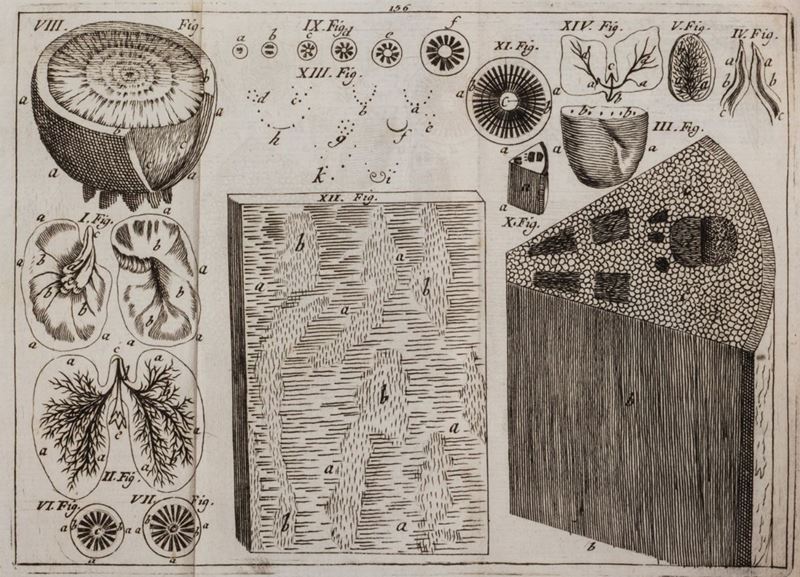 156
VIII. Fig.
a
a
a
a
a
b
b
c
c
IX. Fig.
a b c d e f
XIII. Fig.
d c b a
h g f e
k i
XI. Fig.
a
b
c
b
a
XIV. Fig.
a
a
c
b
V. Fig.
IV. Fig.
a a
b b
c c
III. Fig.
b b
a a
X. Fig.
a
a
a
b
b
I. Fig.
a
a
a
a
b
b
b
c
a
a
a
b
b
b
XII. Fig.
b
a
b
a
a
b
a
a
b
a
II. Fig.
a
a
a
a
c
c
VI. Fig.
a
b
c
a
a
VII. Fig.
a
b
c
a
a